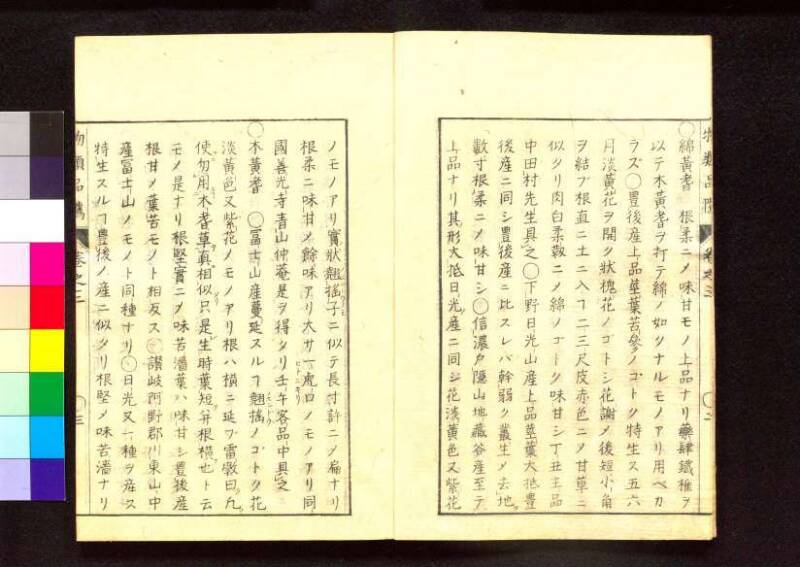 物類品隲 巻之三 ○二
○綿黄耆 根柔ニメ味甘モノ上品ナリ藥肆鐵椎ヲ
以テ木黄耆ヲ打テ綿ノ如クナルモノアリ用ベカ
ラズ○豊後産上品莖葉苦參ノゴトク特生ス五六
月淡黄花ヲ開ク状槐花ノゴトシ花謝メ後短小角
ヲ結ブ根直ニ土ニ入ヿ二三尺皮赤色ニメ甘草ニ
似タリ肉白柔靱ニメ綿ノゴトク味甘シ丁丑主品
中田村先生具之○下野日光山産上品莖葉大抵豊
後産ニ同シ豊後産ニ比スレバ幹弱ク叢生メ去地
數寸根柔ニメ味甘シ○信濃戸隠山地藏谷産至テ
上品ナリ其形大抵日光産ニ同シ花淡黄色又紫花
ノモノアリ實状翹揺子ニ似テ長寸許ニメ扁ナリ
根柔ニ味甘メ餘味アリ大サ一虎口ノモノアリ同
國善光寺青山仲菴是ヲ得タリ壬午客品中具之
○木黄耆 ○冨士山産蔓延スルヿ翹揺ノコトク花
淡黄色又紫花ノモノアリ根ハ横ニ延フ雷斆曰凡
使勿用木耆草真相似只是生時葉短并根横也ト云
モノ是ナリ根堅實ニメ味苦潘葉ハ味甘シ豊後産
根甘メ葉苦モノト相反ス○讃岐阿野郡川東山中
産冨士山ノモノト同種ナリ○日光又一種ヲ産ス
特生スルヿ豊後ノ産ニ似タリ根堅メ味苦潘ナリ
物類品隲 巻之三 ○三